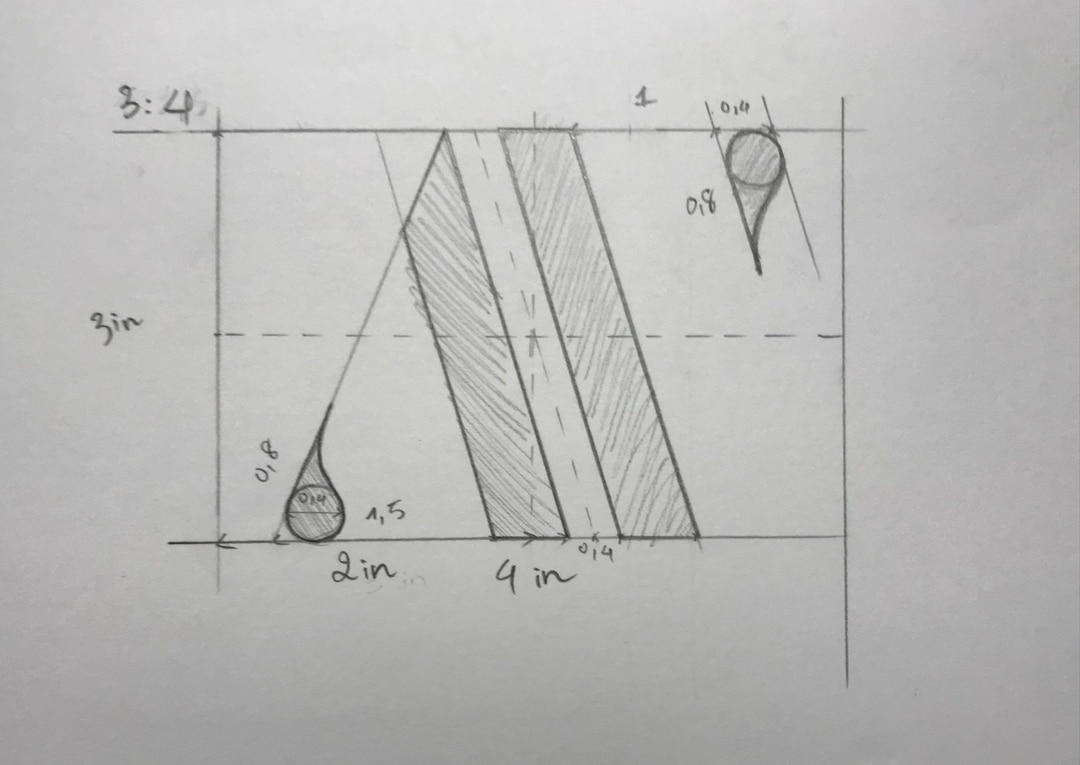 3:4
1
0,4
0,8
3in
0,8
0,4
1,5
2in
4 in
0,4